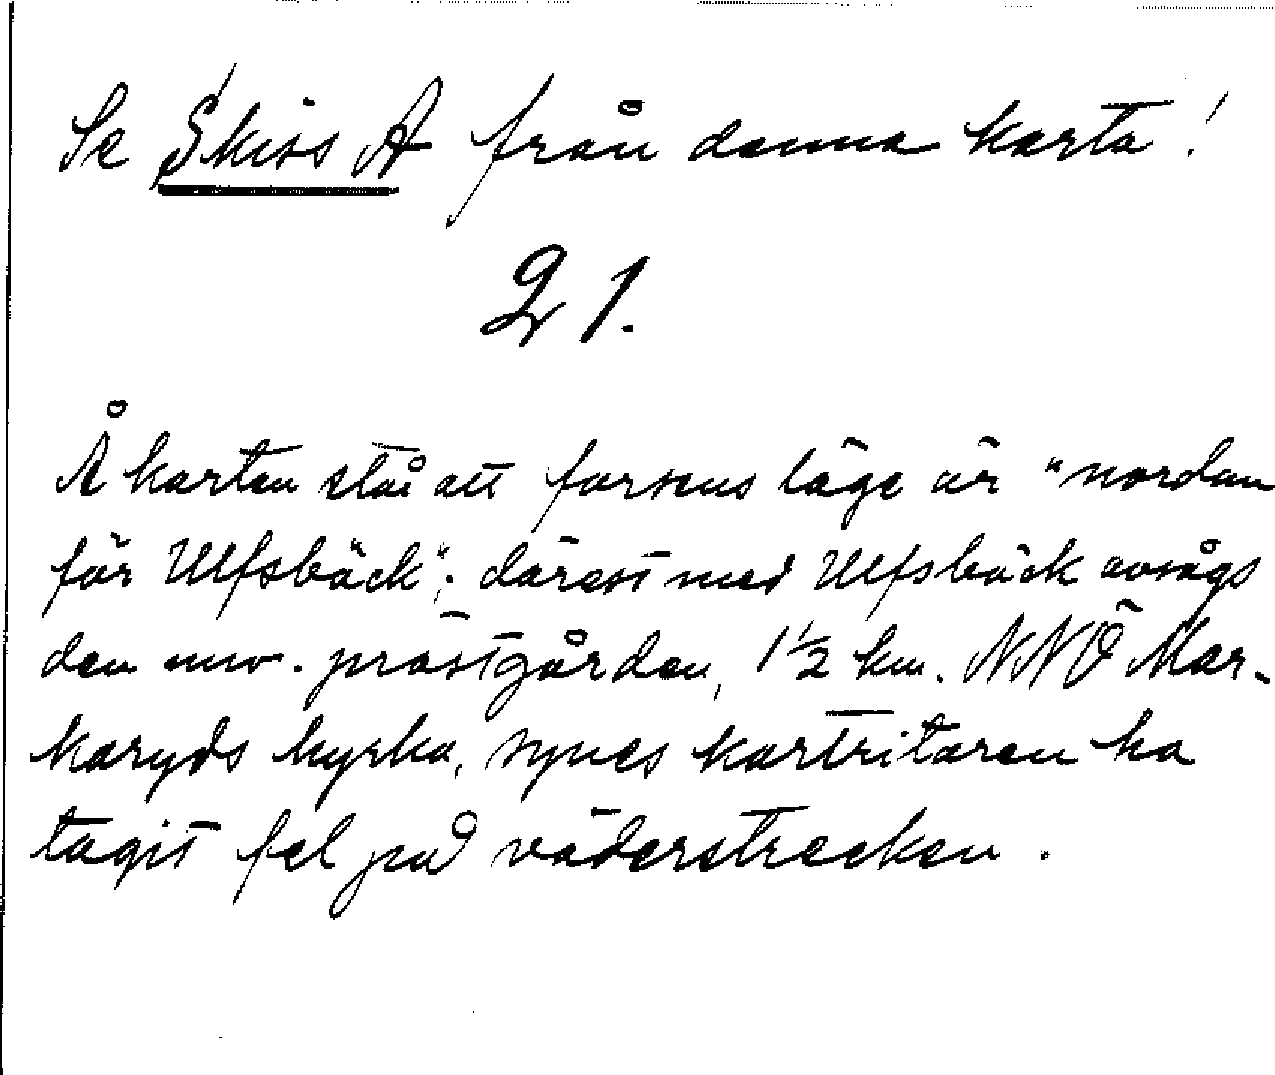 Se Skiss A från denna karta!
21.
Å kartan står att forsens läge är "nordan
för Ulfsbäck"; därest med Ulfsbäck avsågs
den nuv. prästgården, 1½ km. NNÖ Mar-
karyds kyrka, synes kartritaren ha
tagit fel på väderstrecken.